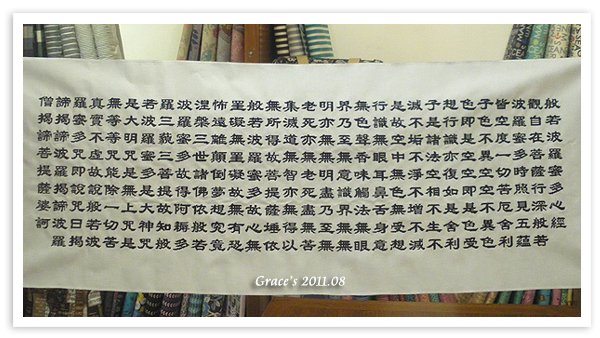 般若波羅蜜多心經
觀自在菩薩行深般若
波羅蜜多時照見五蘊
皆空度一切苦厄舍利
子色不異空空不異色
色即是空空即是色受
想行識亦復如是舍利
子是諸法空相不生不
滅不垢不淨不增不減
是故空中無色無受想
行識無眼耳鼻舌身意
無色聲香味觸法無眼
界乃至無意識界無無
明亦無無明盡乃至無
老死亦無老死盡無苦
集滅道無智亦無得以
無所得故菩提薩埵依
般若波羅蜜多故心無
罣礙無罣礙故無有恐
怖遠離顛倒夢想究竟
涅槃三世諸佛依般若
波羅蜜多故得阿耨多
羅三藐三菩提故知般
若波羅蜜多是大神咒
是大明咒是無上咒是
無等等咒能除一切苦
真實不虛故說般若波
羅蜜多咒即說咒曰揭
諦揭諦波羅揭諦波羅
僧揭諦菩提薩婆訶
Grace's 2011.08